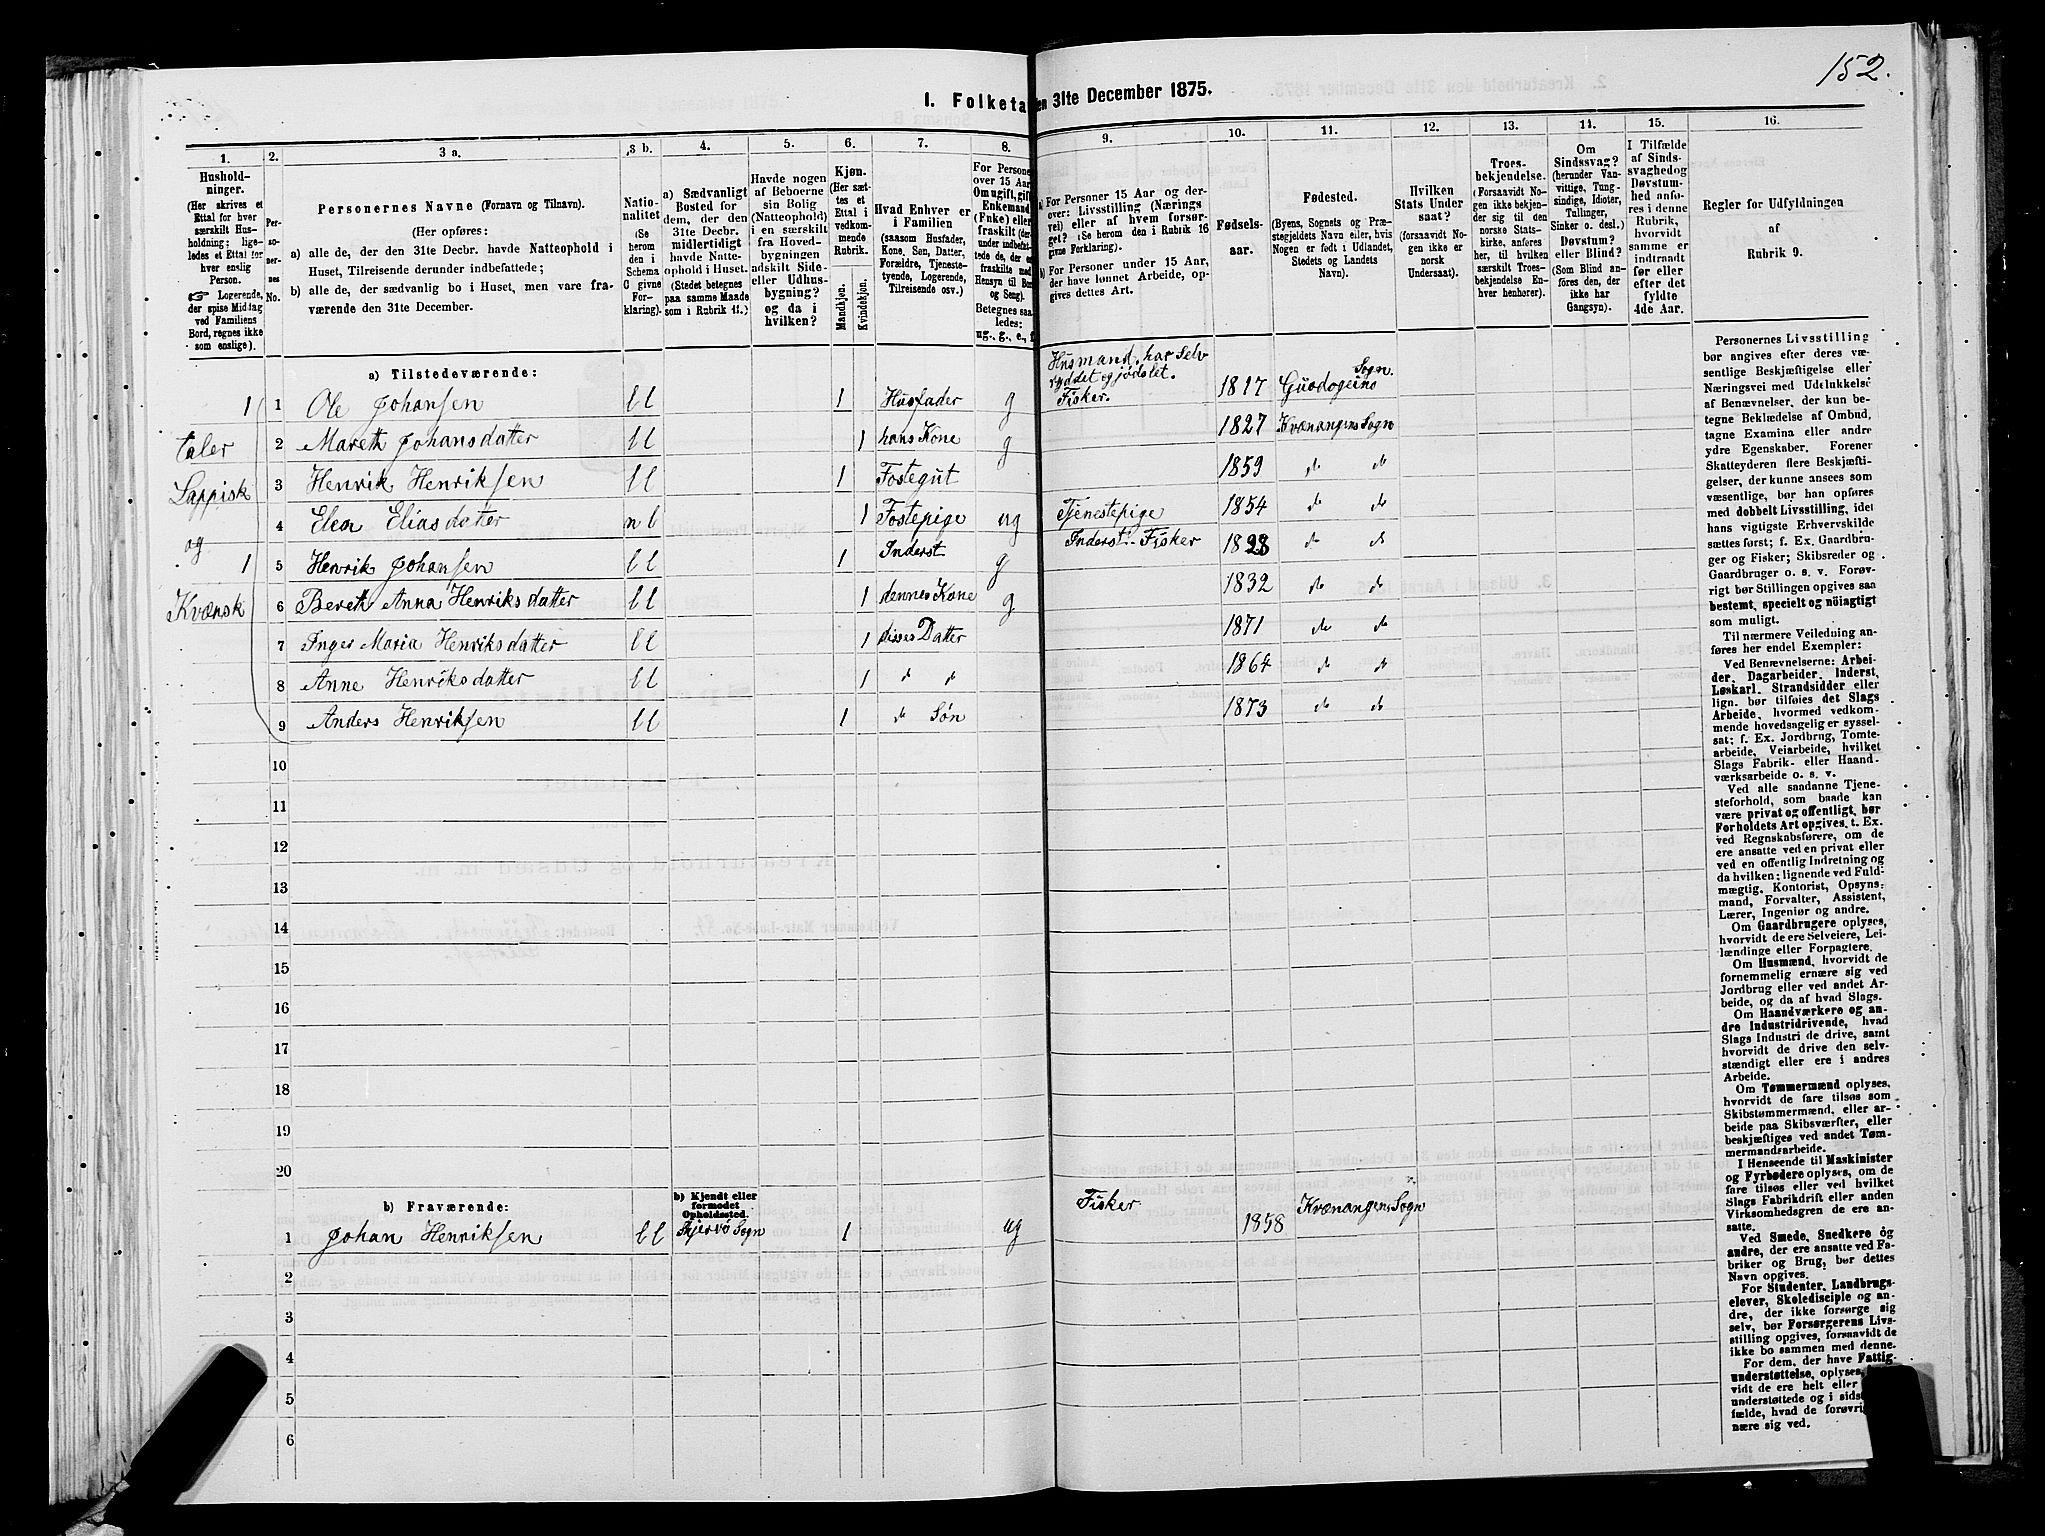 152.
I. Folketa en 31te December 1875.
1.
Hushold-
ninger.
(Her skrives et
Ettal for hver
særskilt Hus-
holdning; lige-
ledes et Ettal for
hver enslig
Person.
☞ Logerende,
der spise Middag
ved Familiens
Bord, regnes ikke
som enslige).
2.
Per-
so-
ner-
nes
No.
3 a.
Personernes Navne (Fornavn og Tilnavn).
(Her opføres:
a) alle de, der den 31te Decbr. havde Natteophold i
Huset, Tilreisende derunder indbefattede;
b) alle de, der sædvanlig bo i Huset, men vare fra-
værende den 31te December.
3 b.
Natio-
nalitet
(Se
herom
den i
Schema
C givne
For-
klaring).
4.
a) Sædvanligt
Bosted for
dem, der den
31te Decbr.
midlertidigt
havde Natte-
ophold i Huset.
(Stedet betegnes
paa samme Maade
som i Rubrik 11.)
5.
Havde nogen
af Beboerne
sin Bolig
(Natteophold)
i en særskilt
fra Hoved-
bygningen
adskilt Side-
eller Udhus-
bygning?
og da i
hvilken?
6.
Kjøn.
(Her sæt-
tes et
Ettal i
vedkom-
mende
Rubrik.
Mandkjøn.
Kvindekjøn.
7.
Hvad Enhver er
i Familien
(saasom Husfader,
Kone, Søn, Datter,
Forældre, Tjeneste-
tyende, Logerende,
Tilreisende osv.)
8.
For Persone
over 15 Aar
Omugift, gift
Enkemand
(Enke) eller
fraskilt (der-
under indbefat-
tede de, der e
fraskilte med
Hensyn til Bor
og Seng).
Betegnes saa-
ledes:
ug., g., e., f.
9.
a) For Personer 15 Aar og der-
over: Livsstilling (Nærings
vei) eller af hvem forsør-
get? (Se herom den i Rubrik 16
givne Forklaring).
b) For Personer under 15 Aar,
der have lønnet Arbeide, op-
gives dettes Art.
10.
Fødsels-
aar.
11.
Fødested.
(Byens, Sognets og Præ-
stegjeldets Navn eller, hvis
Nogen er født i Udlandet,
Stedets og Landets
Navn).
12.
Hvilken
Stats Under
saat?
(forsaavidt No-
gen ikke er
norsk
Undersaat).
13.
Troes-
bekjendelse.
(Forsaavidt No-
gen ikke bekjen-
der sig til den
norske Stats-
kirke, anføres
her, til hvilken
særskilt Troes-
bekjendelse En-
hver henhører).
14.
Om
Sindssvag?
(herunder Van-
vittige, Tung-
sindige, Idioter,
Tullinger,
Sinker o. desl.)
Døvstum?
eller Blind?
(Som Blind an-
føres den, der
ikke har
Gangsyn).
15.
I Tilfælde
af Sinds-
svaghed og
Døvstum-
hed anfø-
res i denne
Rubrik,
hvorvidt
samme er
indtraadt
før eller
efter det
fyldte
4de Aar.
16.
Regler for Udfyldningen
af
Rubrik 9.
a) Tilstedeværende:
Husmand, har selv
ryddet og jødslet.
1 1 Ole Johansen l l 1 Husfader g Fisker. 1817 Guodogeino Sogn
taler 2 Mareth Johansdatter l l 1 hans Kone g 1827 Kvænangens Sogn
Lappisk 3 Henrik Henriksen l l 1 Fostegut 1859 do do
4 Elen Eliasdatter n l 1 Fostepige ug Tjenestepige 1854 do do
og
1 5 Henrik Johansen l l 1 Inderst g Inderst - Fisker 1828 do do
Kvænsk 6 Bereth Anna Henriksdatter l l 1 dennes Kone g 1832 do do
7 Inger Maria Henriksdatter l l 1 disses Datter 1871 do do
8 Anne Henriksdatter l l 1 do do 1864 do do
9 Anders Henriksen l l 1 do Søn 1873 do do
10
11
12
13
14
15
16
17
18
19
20
b) Fraværende:
b) Kjendt eller
formodet
Opholdssted.
1 Johan Henriksen l l Skjervø Sogn 1 ug Fisker 1858 Kvænangens Sogn
2
3
4
5
6
Personernes Livsstilling
bør angives efter deres væ-
sentlige Beskjæftigelse eller
Næringsvei med Udelukkelse
af Benævnelser, der kun be-
tegne Beklædelse af Ombud,
tagne Examina eller andre
ydre Egenskaber. Forener
Skatteyderen flere Beskjæfti-
gelser, der kunne ansees som
væsentlige, bør han opføres
med dobbelt Livsstilling, idet
hans vigtigste Erhvervskilde
sættes først; f. Ex. Gaardbru-
ger og Fisker; Skibsreder og
Gaardbruger o. s. v. Forøv-
rigt bør Stillingen opgives saa
bestemt, specielt og nöiagtigt
som muligt.
Til nærmere Veiledning an-
føres her endel Exempler:
Ved Benævnelserne: Arbei-
der, Dagarbeider, Inderst,
Løskarl, Strandsidder eller
lign. bør tilføies det Slags
Arbeide, hvormed vedkom-
mende hovedsagelig er syssel-
sat; f. Ex. Jordbrug, Tomte-
arbeide, Veiarbeide, hvilket
Slags Fabrik- eller Haand-
værksarbeide o. s. v.
Ved alle saadanne Tjene-
steforhold, som baade kan
være privat og offentligt, bør
Forholdets Art opgives, t. Ex.
ved Regnskabsførere, om de
ere ansatte ved en privat eller
ved en offentlig Indretning og
da hvilken; lignende ved Fuld-
mægtig, Kontorist, Opsyns-
mand, Forvalter, Assistent,
Lærer, Ingeniør og andre.
Om Gaardbrugere oplyses,
hvorvidt de ere Selveiere, Lei-
lændinge eller Forpagtere.
Om Husmænd, hvorvidt de
fornemmelig ernære sig ved
Jordbrug eller ved andet Ar-
beide, og da af hvad Slags.
Om Haandværkere og an-
dre Industridrivende, hvad
Slags Industri de drive, samt
hvorvidt de drive den selv-
stændigt eller ere i andres
Arbeide.
Om Tømmermænd oplyses,
hvorvidt de fare tilsøs som
Skibstømmermænd, eller ar-
beide paa Skibsværfter, eller
beskjæftiges ved andet Tøm-
mermandsarbeide.
I Henseende til Maskinister
og Fyrbødere oplyses, om de
fare tilsøs eller ved hvilket
Slags Fabrikdrift eller anden
Virksomhedsgren de ere an-
satte.
Ved Smede, Snedkere og
andre, der ere ansatte ved Fa-
briker og Brug, bør dettes
Navn opgives.
For Studenter, Landbrugs-
elever, Skoledisciple og an-
dre, der ikke forsørge sig
selv, bør Forsørgerens Livs-
stilling opgives, forsaavidt de
ikke bo sammen med denne.
For dem, der have Fattig-
understøttelse, oplyses,
vidt de ere helt eller
understøttede og i sidst
fælde, hvad de forøvri
nære sig ved.